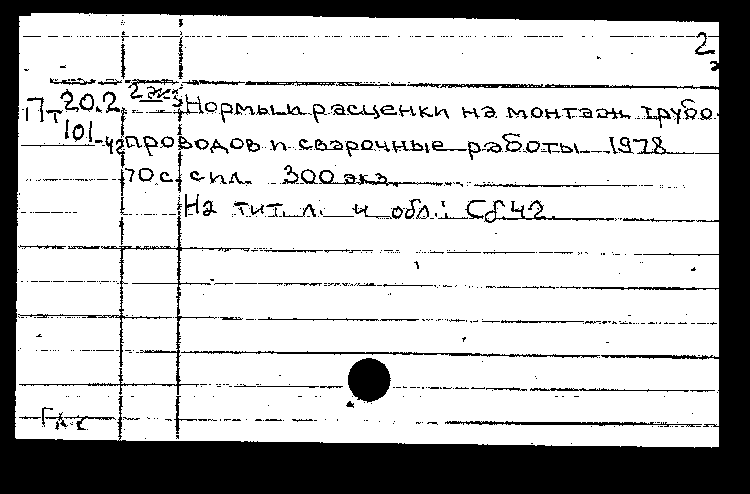 2
э
Пт 20.2 2 экз Нормы и расценки на монтаж трубо-
101-42 проводов и сварочные работы 1978
70 с. с ил. 300 экз.
На тит. л. и обл.: Сб 42.
Гл.к